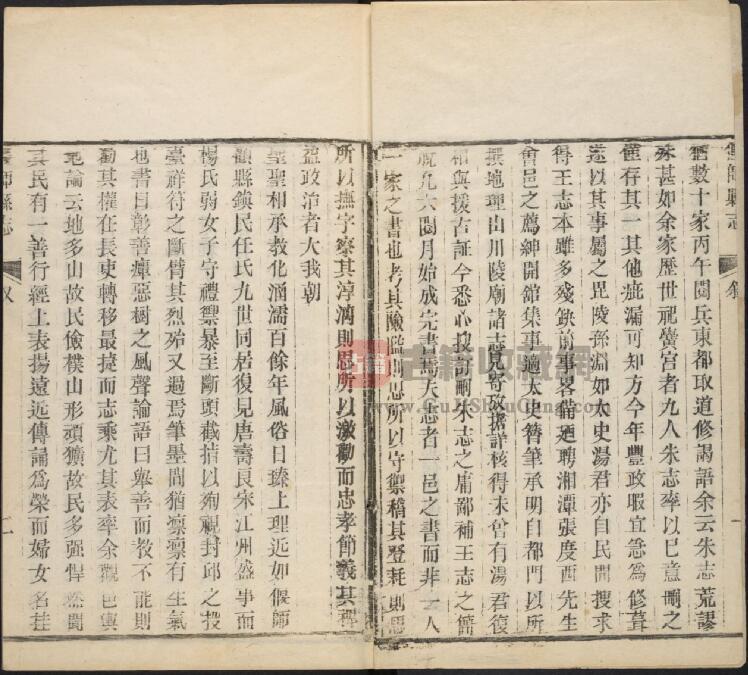 偃師縣志 敘
猶數十家丙午閱兵東都取道修謁語余云朱志荒謬
殊甚如余家歷世祀黌宮者九人朱志率以己意刪之
僅存其一其他疵漏可知方今年豐政暇宜急為修葺
遂以其事屬之毘陵孫淵如太史湯君亦自民間搜求
得王志本雖多殘缺前事畧備廼聘湘潭張度酉先生
會邑之薦紳開舘集事適太史簪筆承明自都門以所
撰地理山川陵廟諸志見寄攷據詳核得未曾有湯君復
相與援古証今悉心搜討刪朱志之庸鄙補王志之簡
畧九六閱月始成完書焉夫志者一邑之書而非一人
一家之書也考其險隘則思所以守禦稽其登耗則思
所以撫字察其淳漓則思所以激勸而忠孝節義其裨
益政治者大我朝
聖聖相承教化涵濡百餘年風俗日臻上理近如偃師
顧縣鎮民任氏九世同居復見唐壽良宋江州盛事而
楊氏弱女子守禮禦暴至斷頭截指以殉視封邱之投
臺祥符之斷臂其烈殆又過焉筆墨間猶凛凛有生氣
也書曰彰善癉惡樹之風聲論語曰舉善而教不能則
勸其權在長吏轉移最捷而志乘尤其表率余觀邑輿
地論云地多山故民儉樸山形頑獷故民多强悍然聞
其民有一善行經上表揚遠近傳誦為榮而婦女名挂
偃師縣志 敘 二
古籍收藏網
www.GuJiShouCang.com